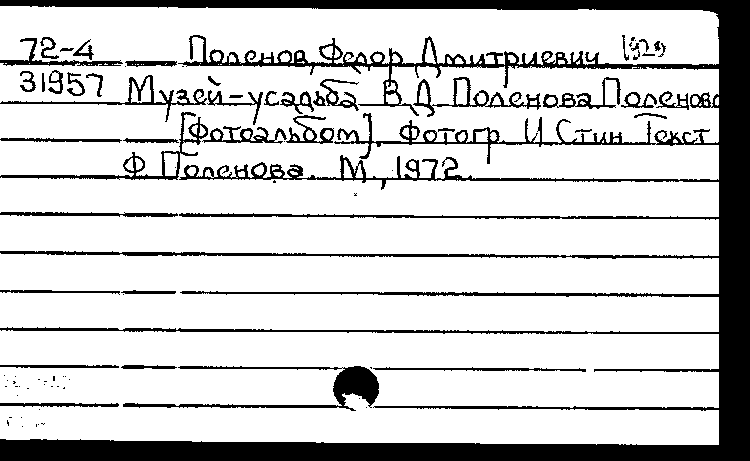 72-4 Поленов, Федор Дмитриевич 1929
31957 Музей-усадьба В.Д. Поленова Поленово
[Фотоальбом]. Фотогр. И. Стин. Текст
Ф. Поленова. М., 1972.